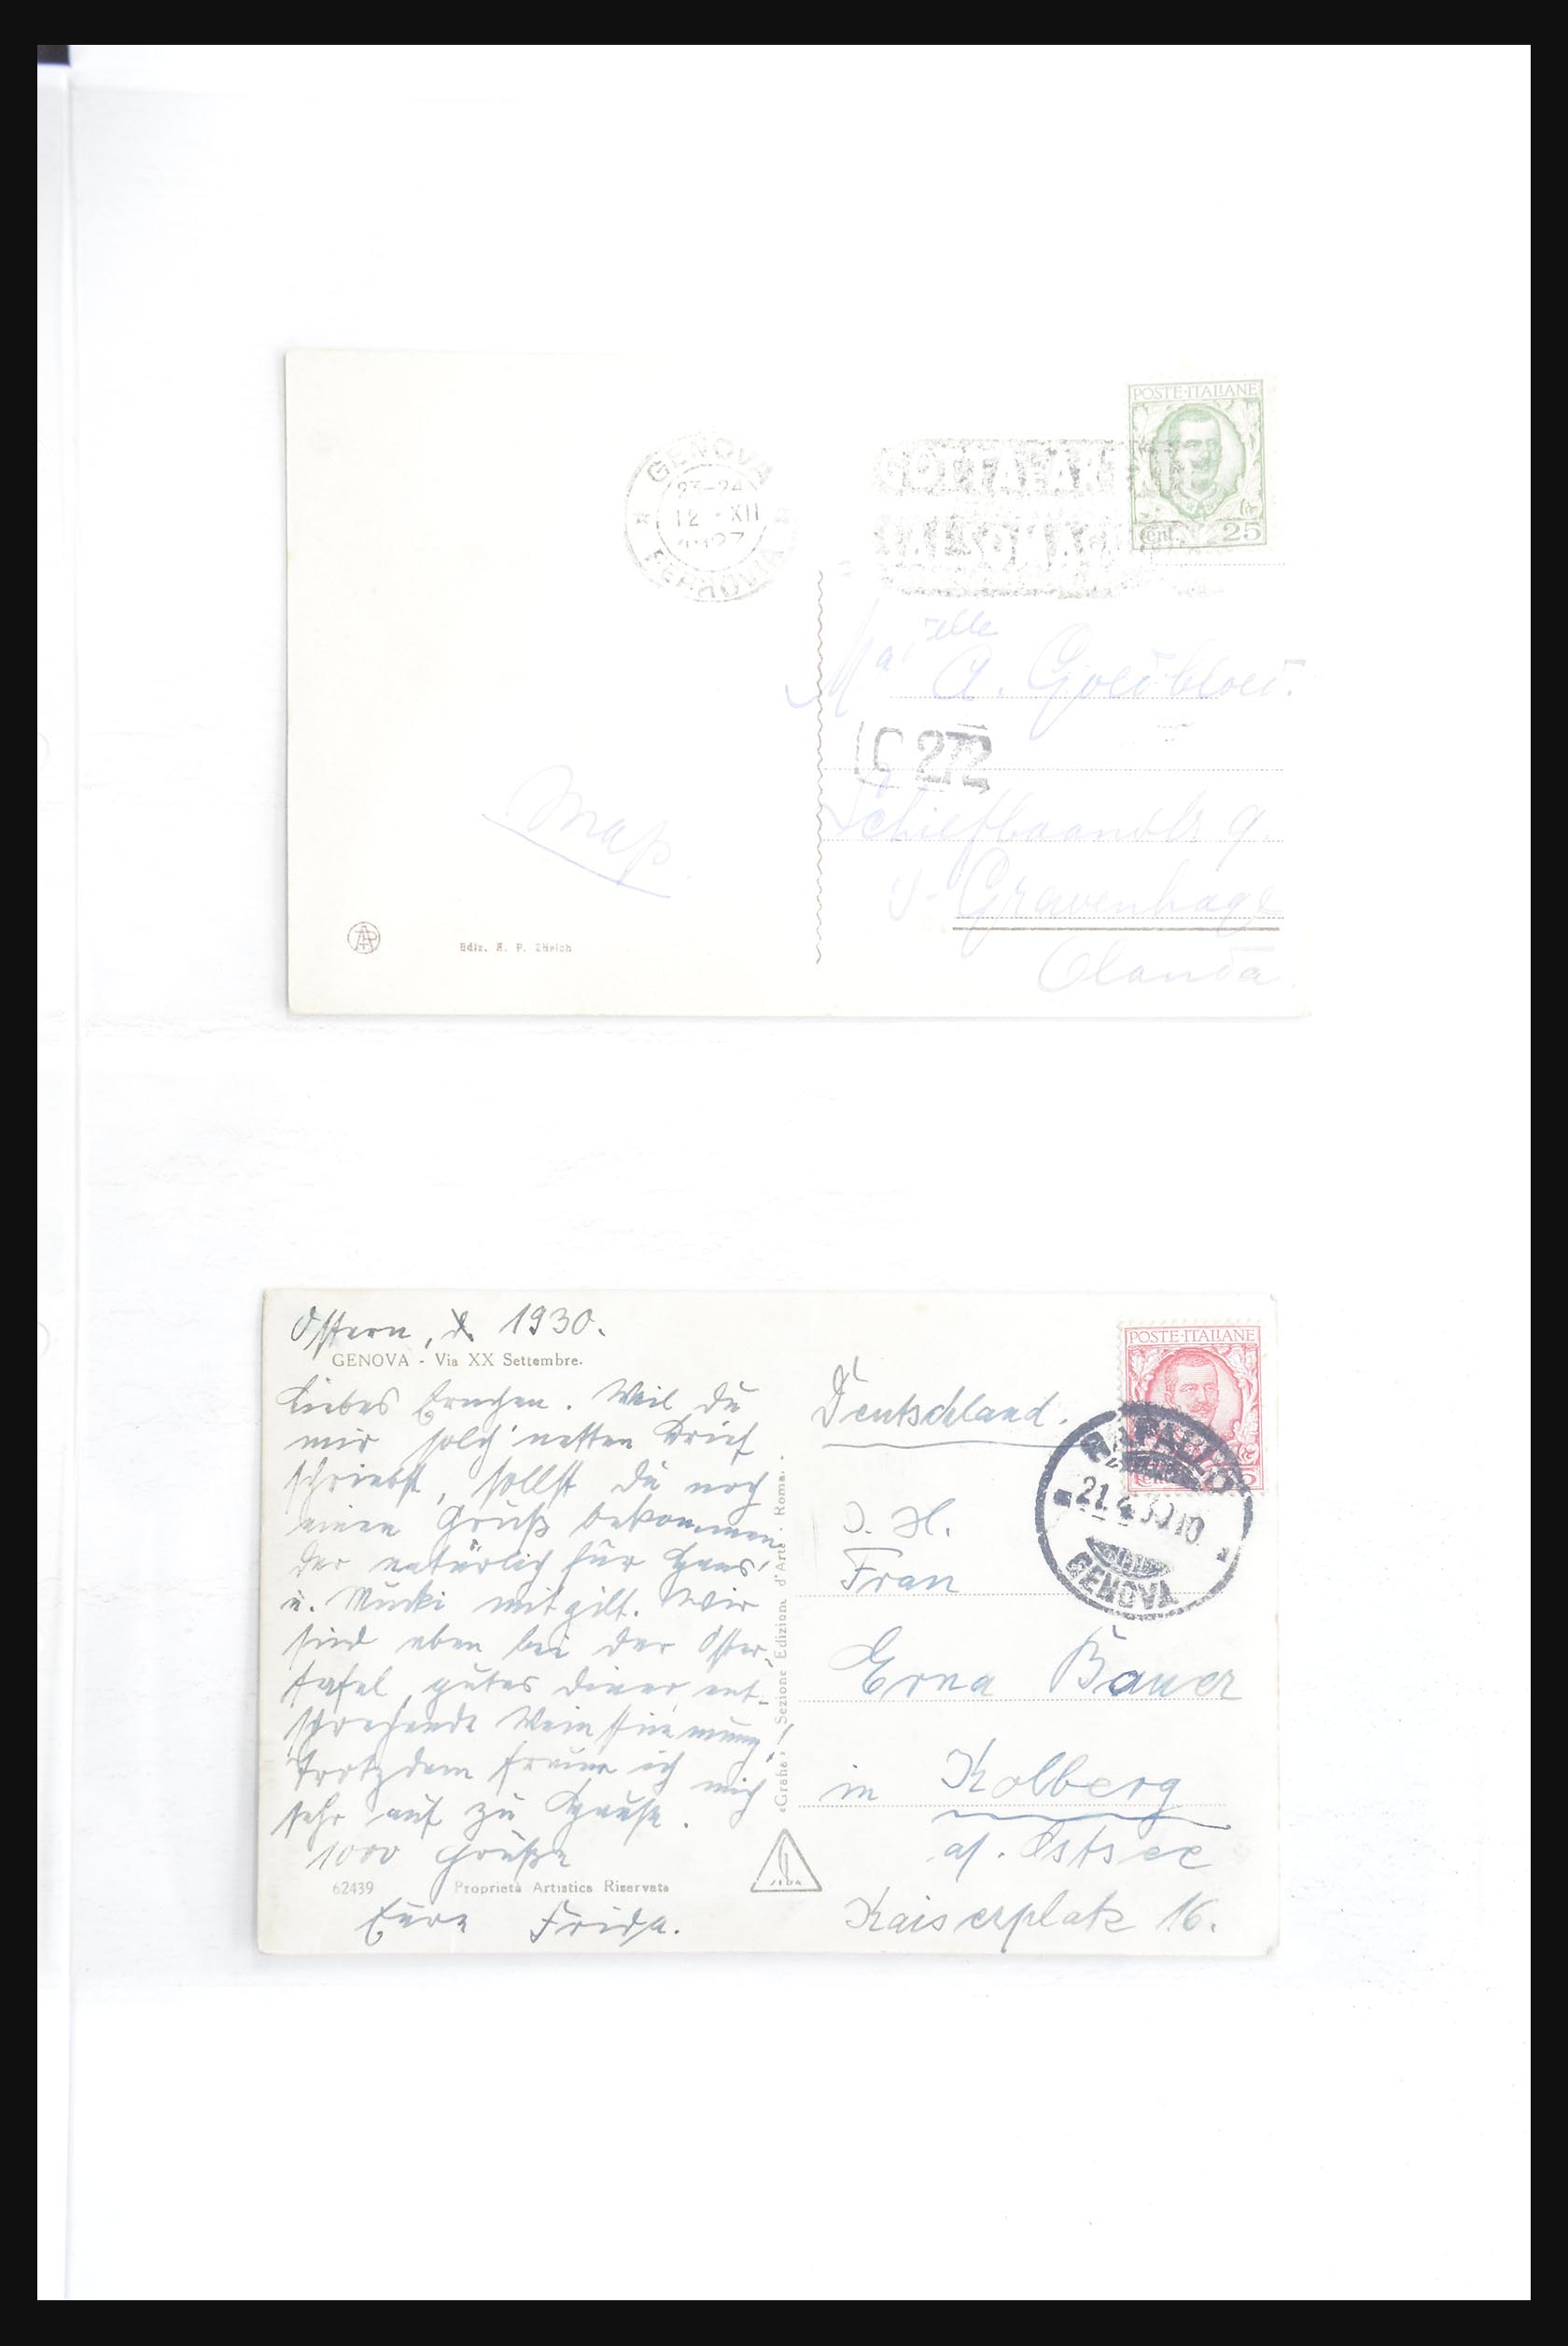 POSTE·ITALIANE
Cent. 25
GENOVA
23-24
12 XII
1927
FERROVIA
Ma elle
A.
C 272
g.
s-Gravenhage
Olanda
Map
AP
Ediz. A. P. Zürich
Ostern, 1930.
GENOVA - Via XX Settembre.
Liebes Ernchen. Weil Du
mir solch' netten Brief
schriebst, sollst Du noch
einen Gruß bekommen,
der natürlich für Hans
u. Mucki mitgilt. Wir
sind eben bei der Oster-
tafel, gutes Diner, ent-
sprechende Weinstimmung,
trotzdem freue ich mich
sehr auf zu Hause.
1000 Grüße
62439 Proprietà Artistica Riservata
Eure Frida.
«Grafia» Sezione Edizioni d'Arte - Roma.
POSTE·ITALIANE
RAPALLO
21.4.30.10
GENOVA
Deutschland.
I. H.
Frau
Erna Bauer
in Kolberg
a/. Ostsee
Kaiserplatz 16.